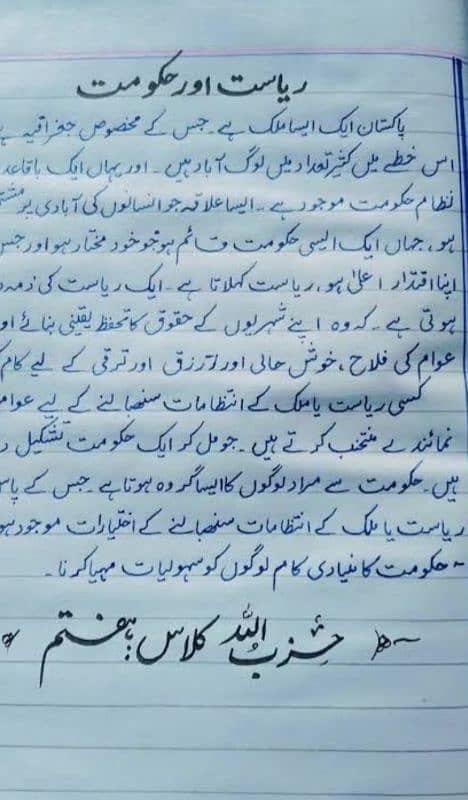 ریاست اور حکومت
پاکستان ایک ایسا ملک ہے جس کے مخصوص جغرافیہ ہے
اس خطے میں کثیر تعداد میں لوگ آباد ہیں۔ اور یہاں ایک باقاعدہ
نظام حکومت موجود ہے۔ ایسا علاقہ جو انسانوں کی آبادی پر مشتمل
ہو، جہاں ایک ایسی حکومت قائم ہو جو خود مختار ہو اور جس
اپنا اقتدار اعلیٰ ہو، ریاست کہلاتا ہے۔ ایک ریاست کی ذمہ
ہوتی ہے۔ کہ وہ اپنے شہریوں کے حقوق کا تحفظ یقینی بنائے او
عوام کی فلاح، خوش حالی اور ترقی کے لیے کام
کسی ریاست یا ملک کے انتظامات سنبھالنے کے لیے عوام
نمائندے منتخب کرتے ہیں۔ جو مل کر ایک حکومت تشکیل د
ہیں۔ حکومت سے مراد لوگوں کا ایسا گروہ ہوتا ہے۔ جس کے پاس
ریاست یا ملک کے انتظامات سنبھالنے کے اختیارات موجود ہو
۔ حکومت کا بنیادی کام لوگوں کو سہولیات مہیا کرنا۔
حزب اللہ کلاس: ہفتم